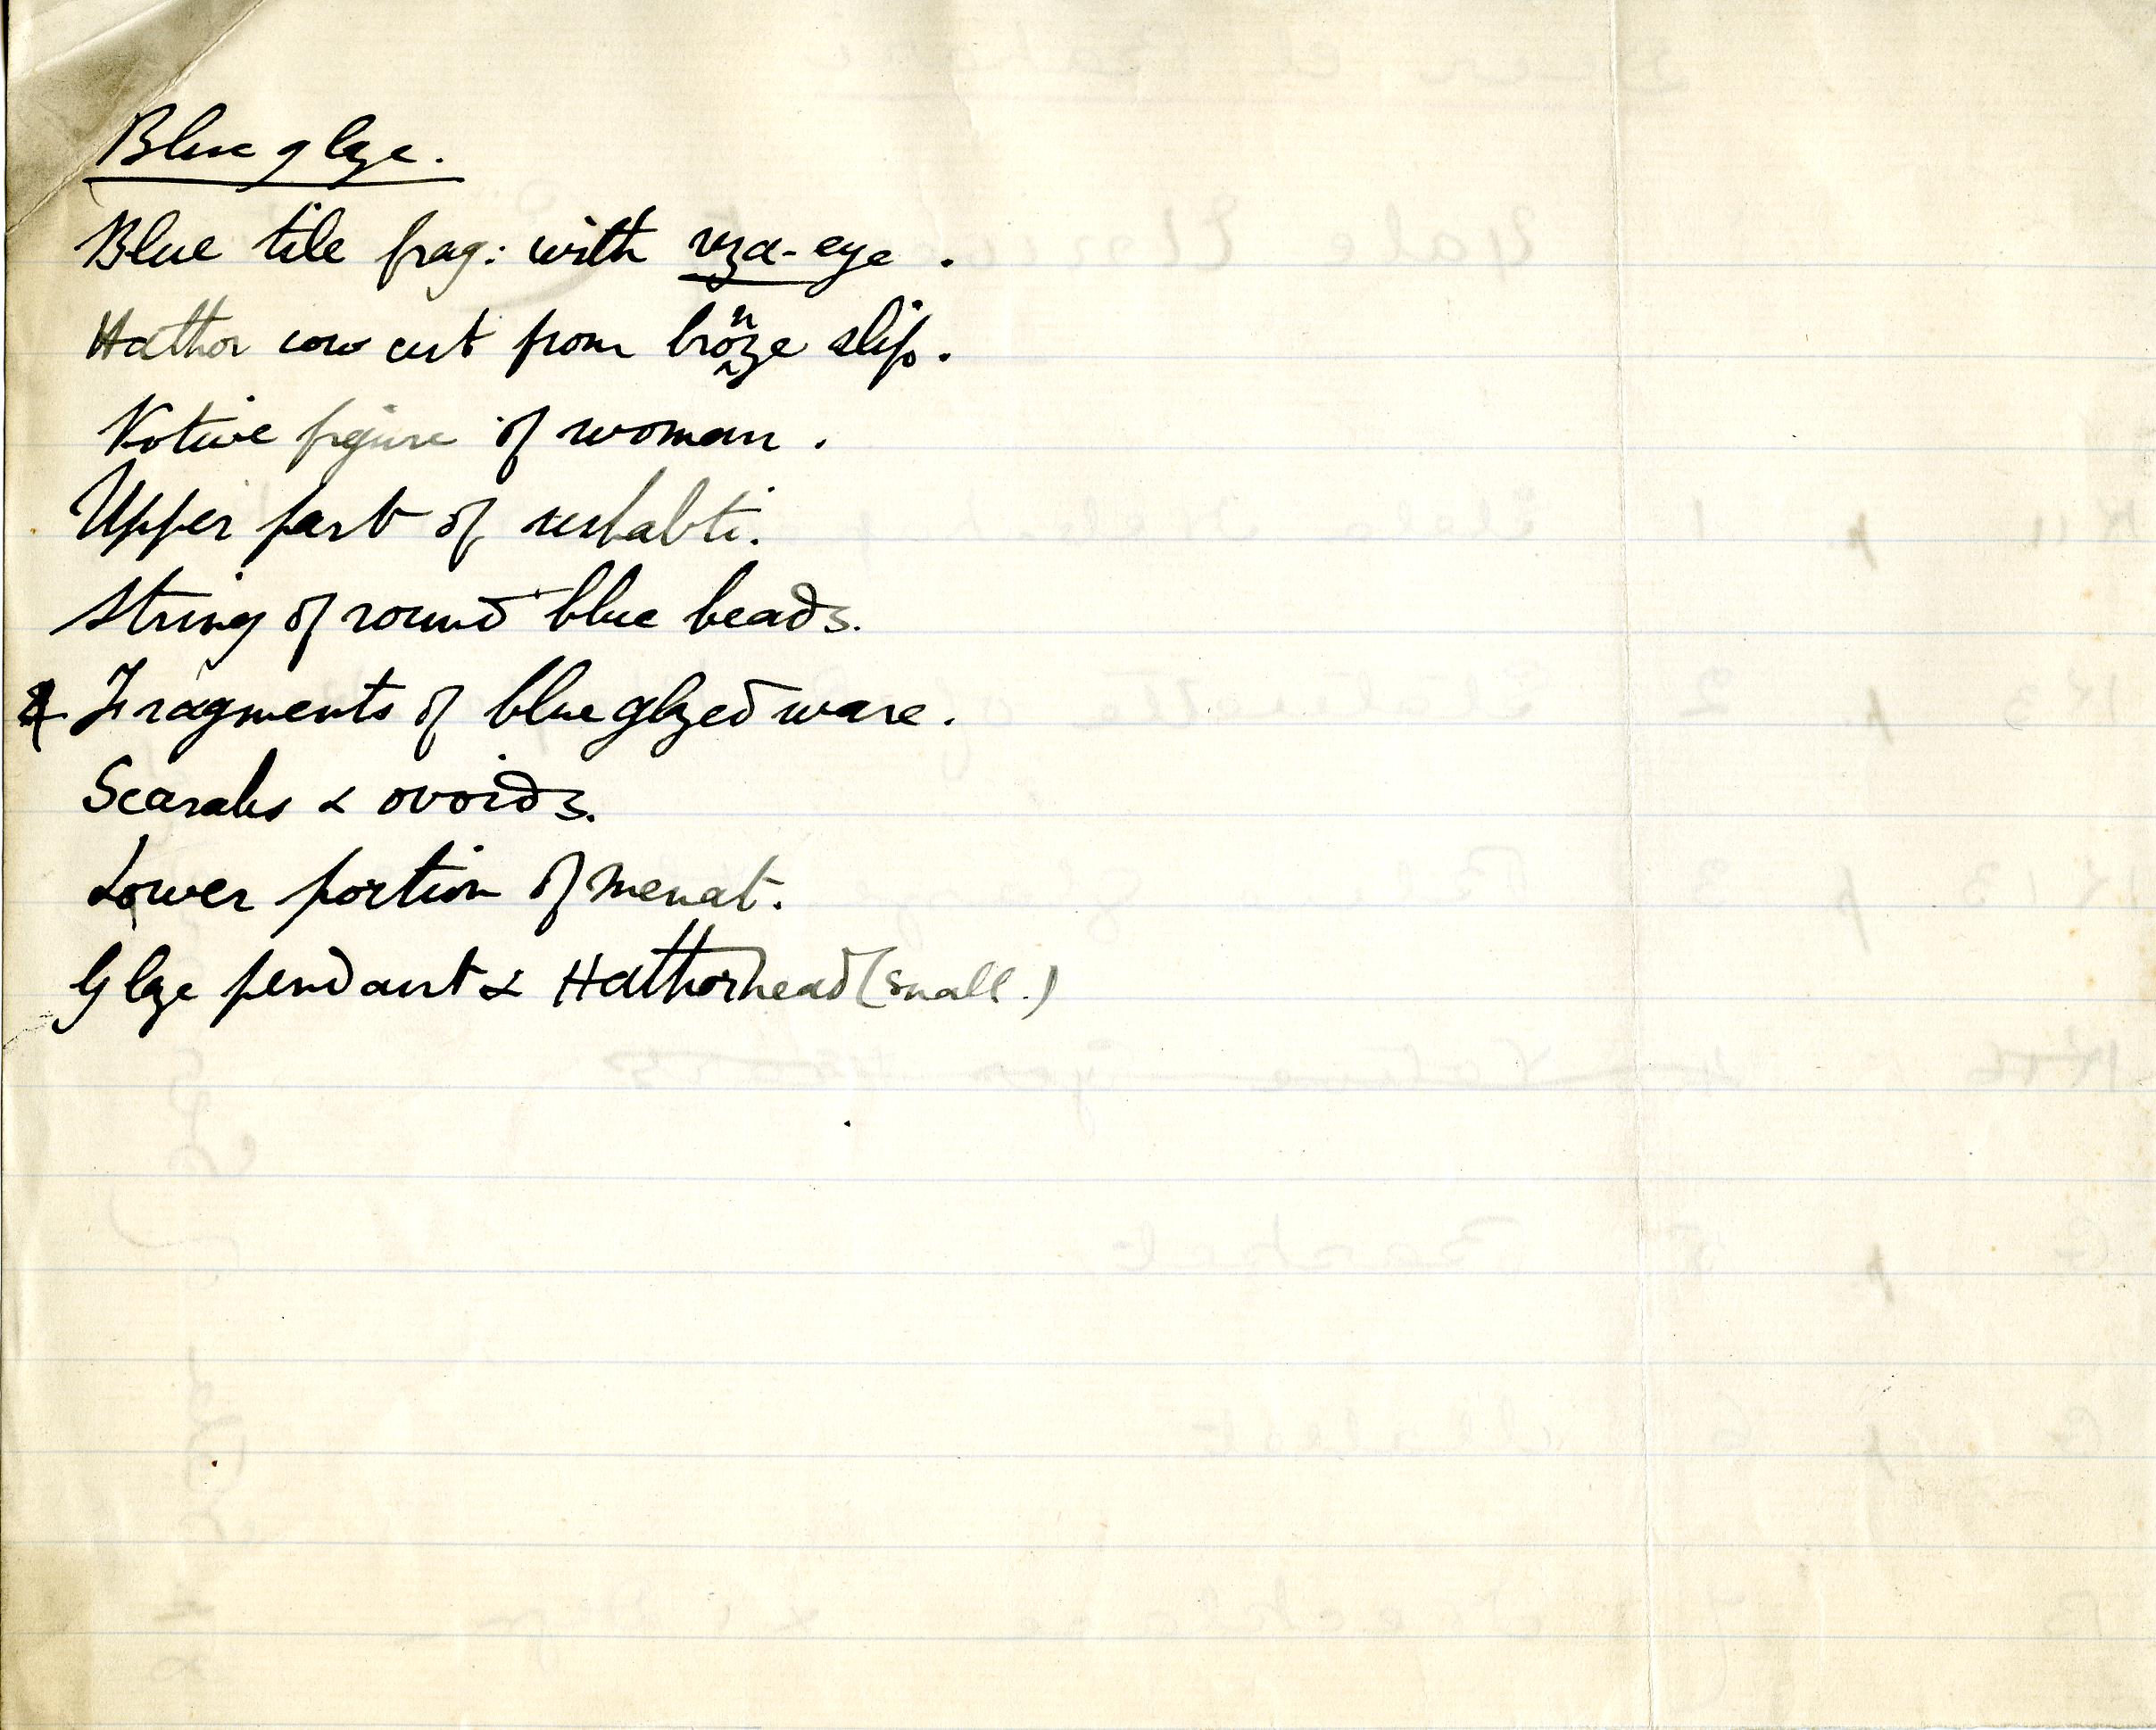 Blue glaze.
Blue tile frag: with uza-eye.
Hathor cow cut from bronze slip.
Votive figure of woman.
Upper part of ushabti.
String of round blue beads.
4 Fragments of blue glazed ware.
Scarabs & ovoids.
Lower portion of menat.
Glaze pendant & Hathor head (small.)